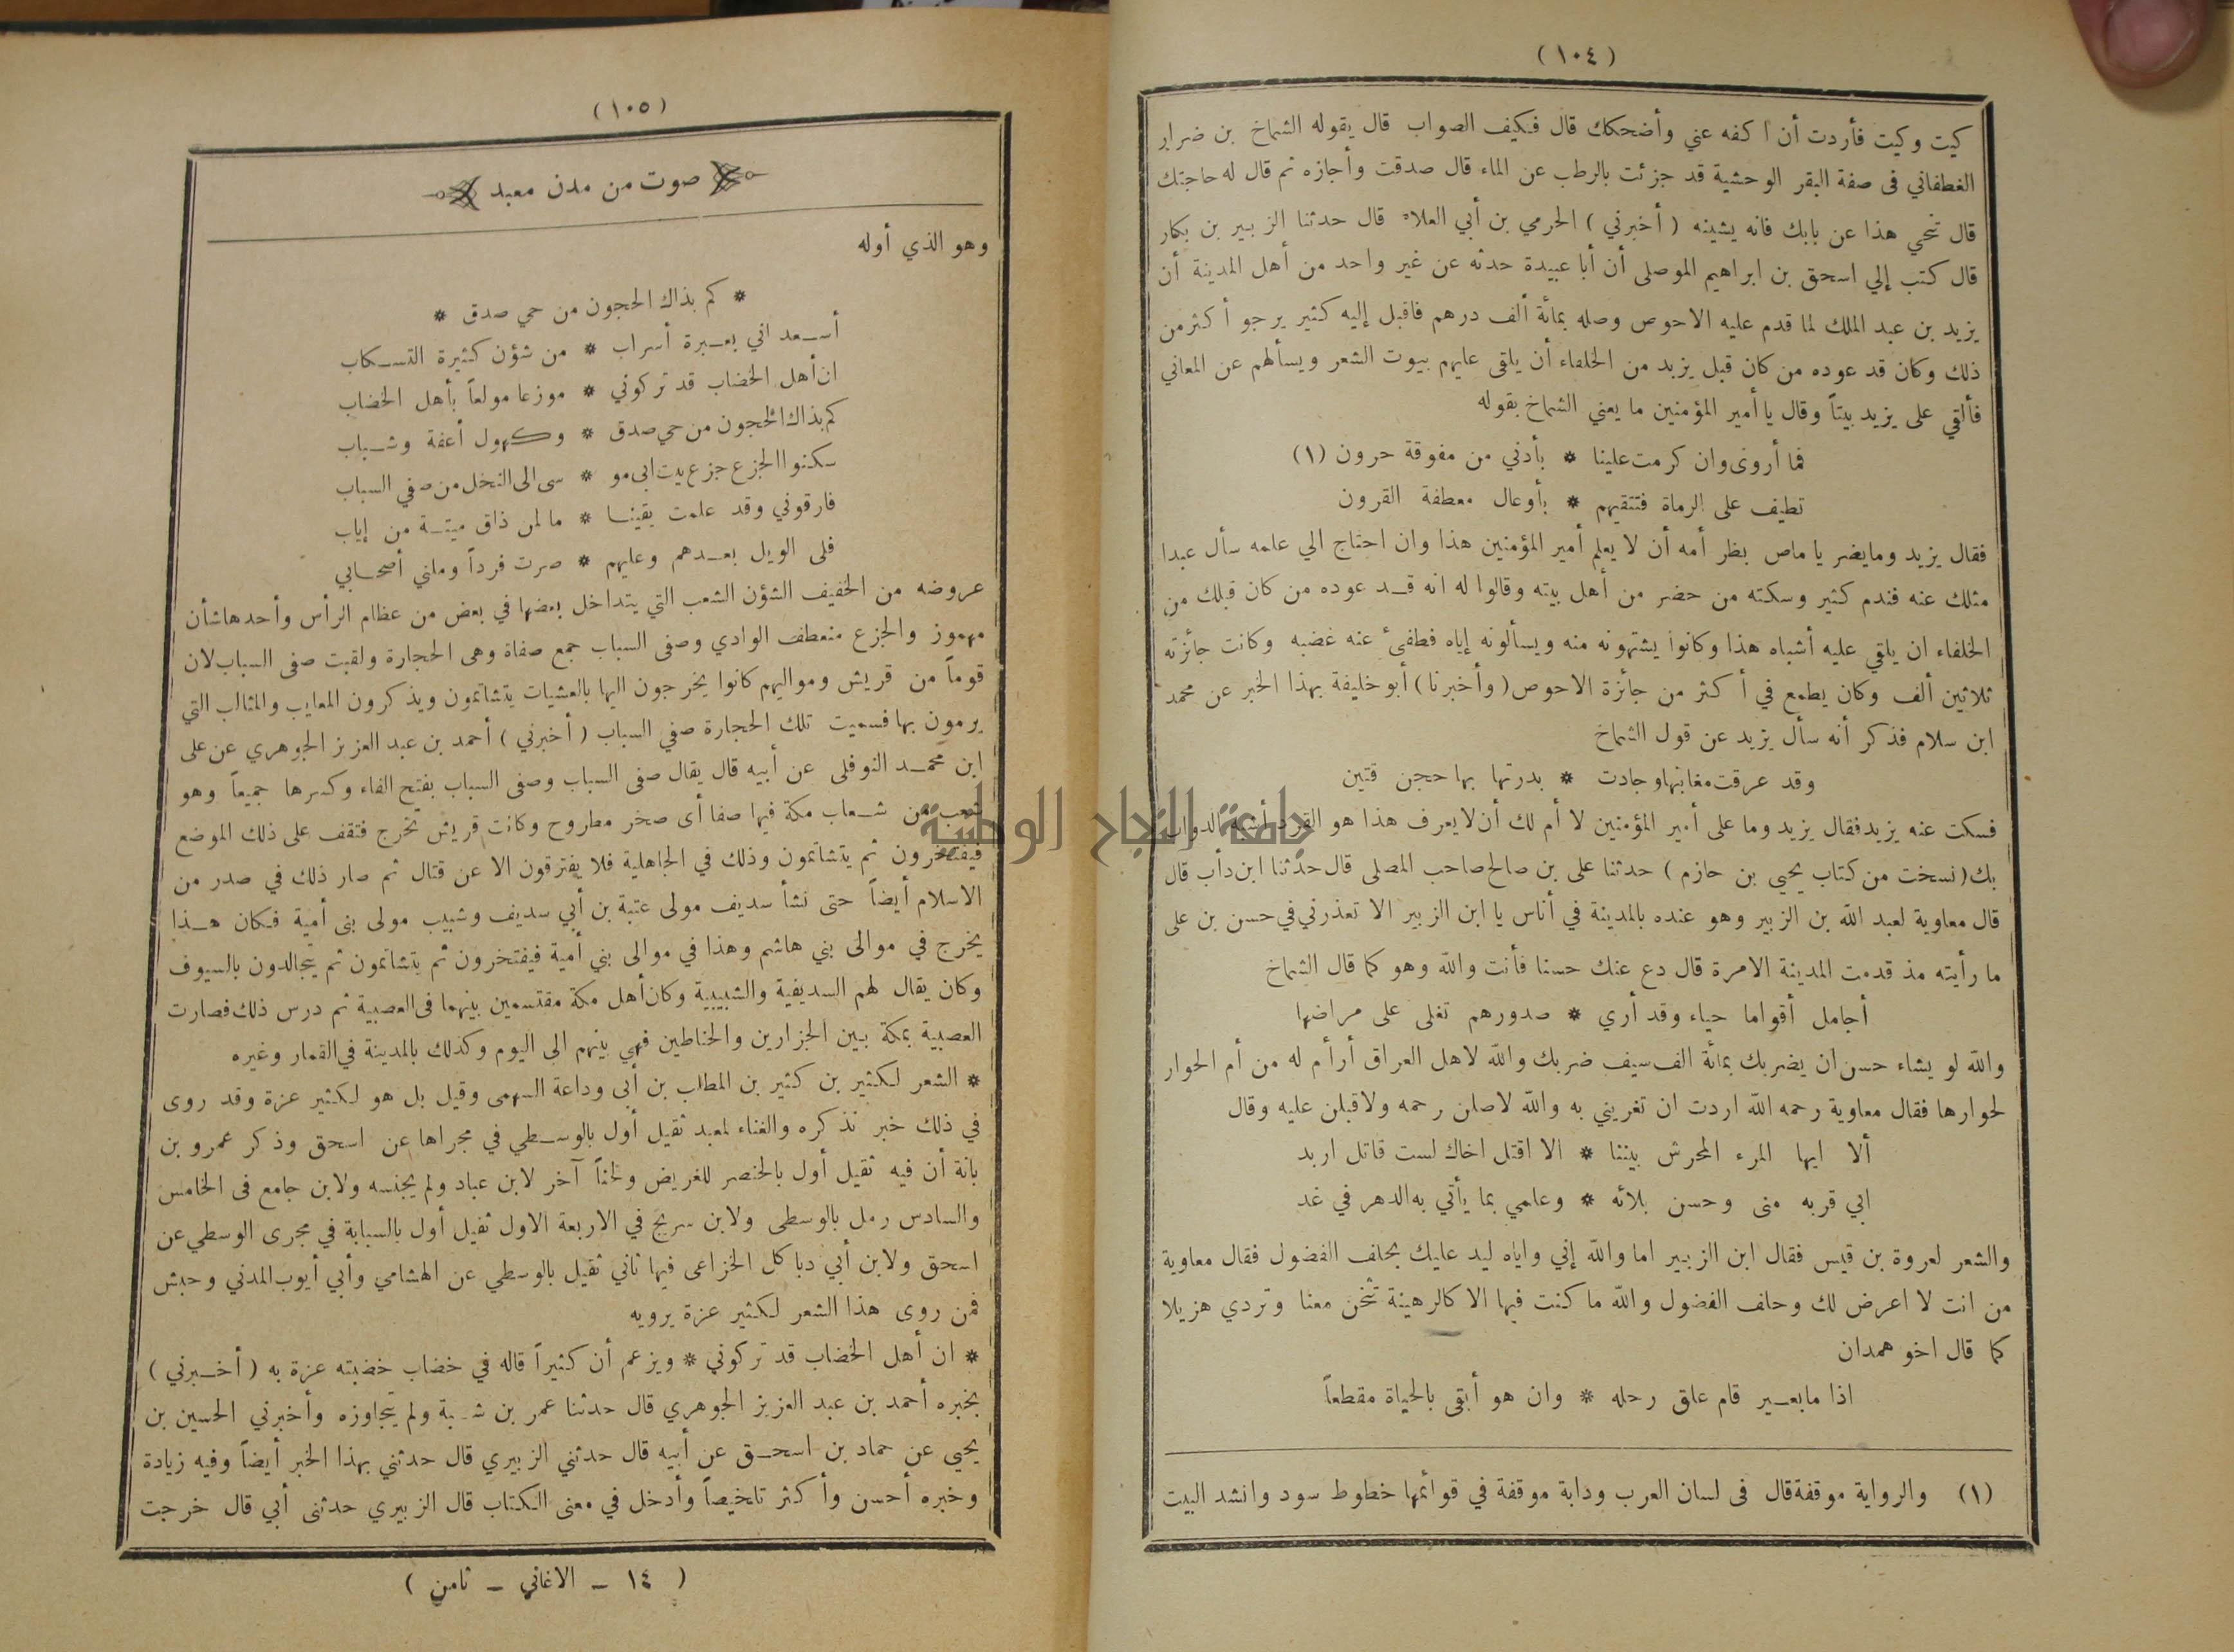 (١٠٤)
كيت وكيت فأردت أن أكفه عني وأضحكك قال فكيف الصواب قال يقوله الشماخ بن ضرار
الغطفاني فى صفة البقر الوحشية قد جزئت بالرطب عن الماء قال صدقت وأجازه ثم قال له حاجتك
قال تنحي هذا عن بابك فانه يشينه (أخبرني) الحرمي بن أبي العلاء قال حدثنا الزبير بن بكار
قال كتب إلي اسحق بن ابراهيم الموصلى أن أبا عبيدة حدثه عن غير واحد من أهل المدينة أن
يزيد بن عبد الملك لما قدم عليه الاحوص وصله بمائة ألف درهم فاقبل إليه كثير يرجو أكثر من
ذلك وكان قد عوده من كان قبل يزيد من الخلفاء أن يلقى عليهم بيوت الشعر ويسألهم عن المعاني
فألقي على يزيد بيتاً وقال يا أمير المؤمنين ما يعني الشماخ بقوله
فما أروى وان كرمت علينا * بأدني من موفقة حرون (١)
تطيف على الرماة فتتقيهم * بأوعال معطفة القرون
فقال يزيد وما يضر يا ماص بظر أمه أن لا يعلم أمير المؤمنين هذا وان احتاج الي علمه سأل عبدا
مثلك عنه فندم كثير وسكته من حضر من أهل بيته وقالوا له انه قد عوده من كان قبلك من
الخلفاء ان يلقي عليه أشباه هذا وكانوا يشتهونه منه ويسألونه إياه فطفئ عنه غضبه وكانت جائزته
ثلاثين ألف وكان يطمع في أكثر من جائزة الاحوص (وأخبرنا) أبو خليفة بهذا الخبر عن محمد
ابن سلام فذكر أنه سأل يزيد عن قول الشماخ
وقد عرقت مغابنها وجادت * بدرتها بها حجن قتين
فسكت عنه يزيد فقال يزيد وما على أمير المؤمنين لا أم لك أن لا يعرف هذا هو القرد أشبه الدواب
بك (نسخت من كتاب يحيى بن حازم) حدثنا على بن صالح صاحب المصلى قال حدثنا ابن دأب قال
قال معاوية لعبد الله بن الزبير وهو عنده بالمدينة في أناس يا ابن الزبير الا تعذرني في حسن بن على
ما رأيته مذ قدمت المدينة الا مرة قال دع عنك حسنا فأنت والله وهو كما قال الشماخ
أجامل أقواما حياء وقد أري * صدورهم تغلى على مراضها
والله لو يشاء حسن ان يضربك بمائة الف سيف ضربك والله لاهل العراق أرأم له من أم الحوار
لحوارها فقال معاوية رحمه الله اردت ان تغريني به والله لاصلن رحمه ولاقبلن عليه وقال
ألا ايها المرء المحرش بيننا * الا اقتل اخاك لست قاتل اربد
ابي قربه منى وحسن بلائه * وعلمي بما يأتي به الدهر في غد
والشعر لعروة بن قيس فقال ابن الزبير اما والله إني واياه ليد عليك بحلف الفضول فقال معاوية
من انت لا اعرض لك وحلف الفضول والله ما كنت فيها الا كالرهينة تثخن معنا وتردي هزيلا
كما قال اخو همدان
اذا ما بعير قام علق رحله * وان هو أبقى بالحياة مقطعاً
(١) والرواية موقفة قال فى لسان العرب ودابة موقفة في قوائمها خطوط سود وانشد البيت
(١٠٥)
صوت من مدن معبد
وهو الذي أوله
* كم بذاك الحجون من حي صدق *
أسعداني بعبرة أسراب * من شؤن كثيرة التسكاب
ان أهل الخضاب قد تركوني * موزعا مولعاً بأهل الخضاب
كم بذاك الحجون من حي صدق * وكهول أعفة وشباب
سكنوا الجزع جزع بيت ابى مو * سى الى النخل من صفي السباب
فارقوني وقد علمت يقينا * ما لمن ذاق ميتة من إياب
فلى الويل بعدهم وعليهم * صرت فرداً وملني أصحابي
عروضه من الخفيف الشؤن الشعب التي يتداخل بعضها في بعض من عظام الرأس وأحدها شأن
مهموز والجزع منعطف الوادي وصفى السباب جمع صفاة وهى الحجارة ولقبت صفى السباب لان
قوماً من قريش ومواليهم كانوا يخرجون اليها بالعشيات يتشاتمون ويذكرون المعايب والمثالب التي
يرمون بها فسميت تلك الحجارة صفي السباب (أخبرني) أحمد بن عبد العزيز الجوهري عن على
ابن محمد النوفلى عن أبيه قال يقال صفى السباب وصفى السباب بفتح الفاء وكسرها جميعاً وهو
شعب من شعاب مكة فيها صفا أى صخر مطروح وكانت قريش تخرج فتقف على ذلك الموضع
فيفتخرون ثم يتشاتمون وذلك في الجاهلية فلا يفترقون الا عن قتال ثم صار ذلك في صدر من
الاسلام أيضاً حتى نشأ سديف مولى عتبة بن أبي سديف وشبيب مولى بنى أمية فكان هذا
يخرج في موالى بني هاشم وهذا في موالى بني أمية فيفتخرون ثم يتشاتمون ثم يتجالدون بالسيوف
وكان يقال لهم السديفية والشبيبية وكان أهل مكة مقتسمين بينهما فى العصبية ثم درس ذلك فصارت
العصبية بمكة بين الجزارين والحناطين فهي بينهم الى اليوم وكذلك بالمدينة في القمار وغيره
* الشعر لكثير بن كثير بن المطلب بن أبى وداعة السهمى وقيل بل هو لكثير عزة وقد روى
في ذلك خبر نذكره والغناء لمعبد ثقيل أول بالوسطي في مجراها عن اسحق وذكر عمرو بن
بانة أن فيه ثقيل أول بالخنصر للغريض ولحناً آخر لابن عباد ولم يجنسه ولابن جامع فى الخامس
والسادس رمل بالوسطى ولابن سريج في الاربعة الاول ثقيل أول بالسبابة في مجرى الوسطي عن
اسحق ولابن أبي دباكل الخزاعى فيها ثاني ثقيل بالوسطي عن الهشامي وأبي أيوب المدني وحبش
فمن روى هذا الشعر لكثير عزة يرويه
* ان أهل الخضاب قد تركوني * ويزعم أن كثيراً قاله في خضاب خضبته عزة به (أخبرني)
بخبره أحمد بن عبد العزيز الجوهري قال حدثنا عمر بن شبة ولم يتجاوزه وأخبرني الحسين بن
يحيى عن حماد بن اسحق عن أبيه قال حدثني الزبيري قال حدثني بهذا الخبر أيضاً وفيه زيادة
وخبره أحسن وأكثر تلخيصاً وأدخل في معنى الكتاب قال الزبيري حدثنى أبي قال خرجت
(١٤ – الاغاني – ثامن)
جامعة النجاح الوطنية